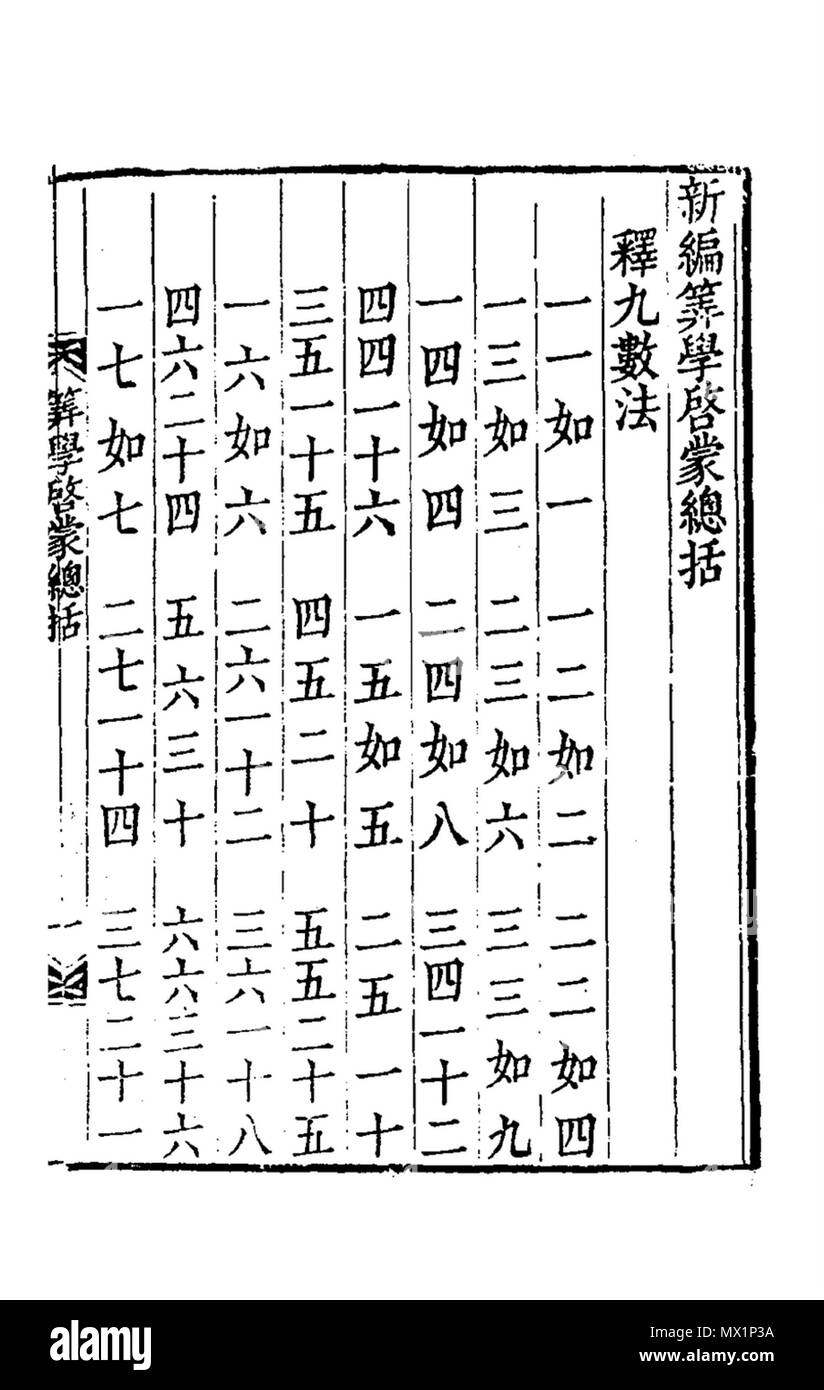 新編筭學啓蒙總括
釋九數法
一一如一　一二如二　二二如四
一三如三　二三如六　三三如九
一四如四　二四如八　三四一十二
四四一十六　一五如五　二五一十
三五一十五　四五二十　五五二十五
一六如六　二六一十二　三六一十八
四六二十四　五六三十　六六三十六
一七如七　二七一十四　三七二十一
筭學啓蒙總括　一
alamy
Image ID: MX1P3A
www.alamy.com